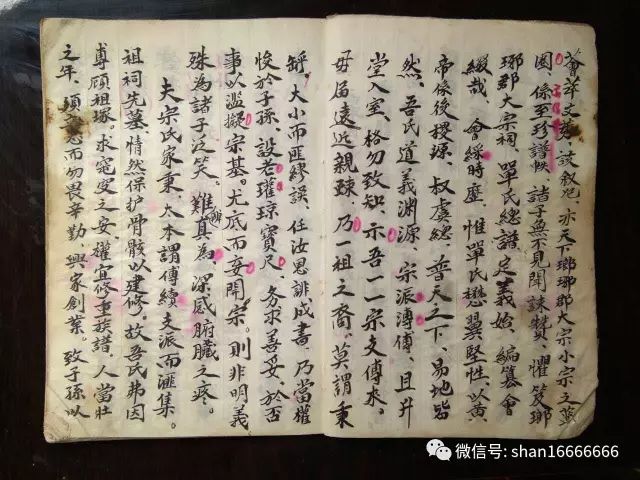 薈萃文，談敘，亦天下瑯琊郡大宗小宗之
圖，係至珍譜帙，諸子無不見聞誄贊，懼笈瑯
琊郡大宗祠，單氏總譜定義始，編纂會
綴哉，會綏時歷，惟單氏懋翼堅性，以黄
帝倏後稷源，叔虞總，普天之下，易地皆
然，吾氏道義淵源，宗派溥傳，且升
堂入室，格勿致知，示吾一一宗支傳來。
毋届遠近親疎，乃一祖之裔，莫謂秉
，大小而匪繆误，任汝思誹，成書，乃當摧
恢於子孫，設若璀琼寶尺，务求善妥，於否
事以濫擬宗基。尤底而妄開宗。则非明義
殊為諸子泛笑。難辨真為，深感腑臟之疼。
夫宗氏家秉，太本謂傳續支派而匯集。
祖祠先墓，情然保护骨骸以建修。故吾氏弗因
專顧祖塚。求窀窆之安，嬥宜修重族譜，人當壯
之年，須慮而勿畏辛勤，興家創業。致子孫以
微信号: shan16666666